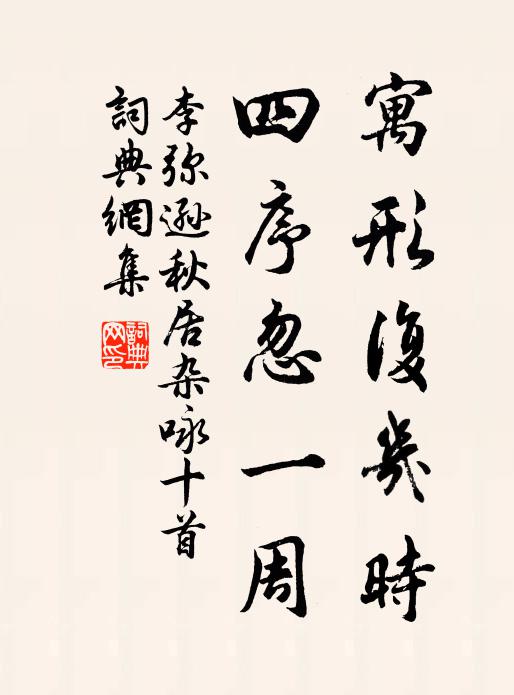 寓形復幾時
四序忽一周
李弥遜秋居杂咏十首
詞典網集
詞典網印